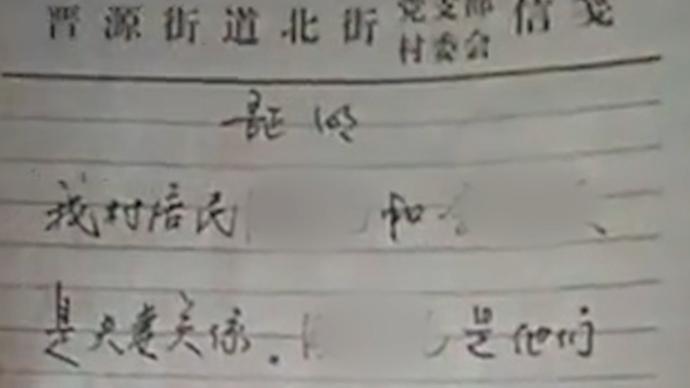 晋源街道北街党支部村委会信笺
证明
我村居民 和 、
是夫妻关系。 是他们